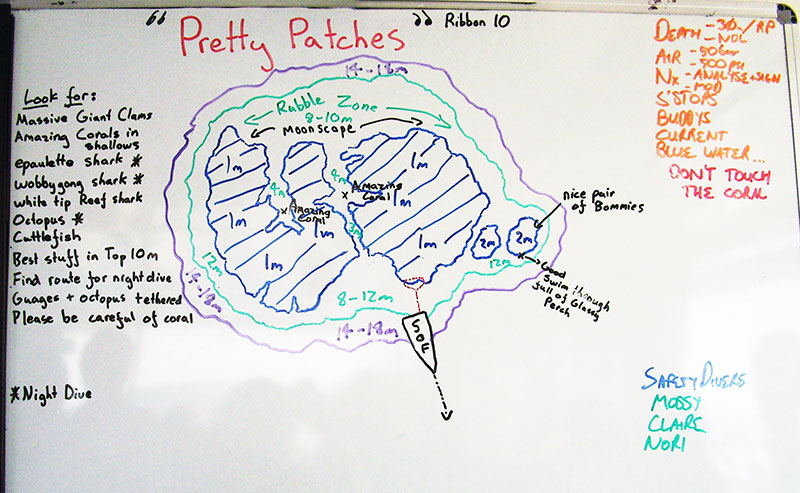 " Pretty Patches " Ribbon 10
Look for:
Massive Giant Clams
Amazing Corals in
shallows
epaulette shark *
wobbygong shark *
white tip Reef shark
Octopus *
Cuttlefish
Best stuff in Top 10m
Find route for night dive
Guages + octopus tethered
Please be careful of coral
*Night Dive
14-18m
Rubble Zone
8-10m
Moonscape
1m
1m
1m
4m
4m
Amazing
Coral
1m
Amazing
Coral
1m
1m
3m
1m
1m
2m
2m
nice pair
of Bommies
12m
12m
14-18m
8-12m
14-18m
Good
Swim through
full of Glassy
Perch
SOF
DEATH - 30m/RP
- NDL
AIR - 50bar
- 500 psi
Nx - ANALYSE+SIGN
- MOD
S'STOPS
BUDDYS
CURRENT
BLUE WATER...
DON'T TOUCH
THE CORAL
SAFETY DIVERS
MOSSY
CLAIRE
NORI